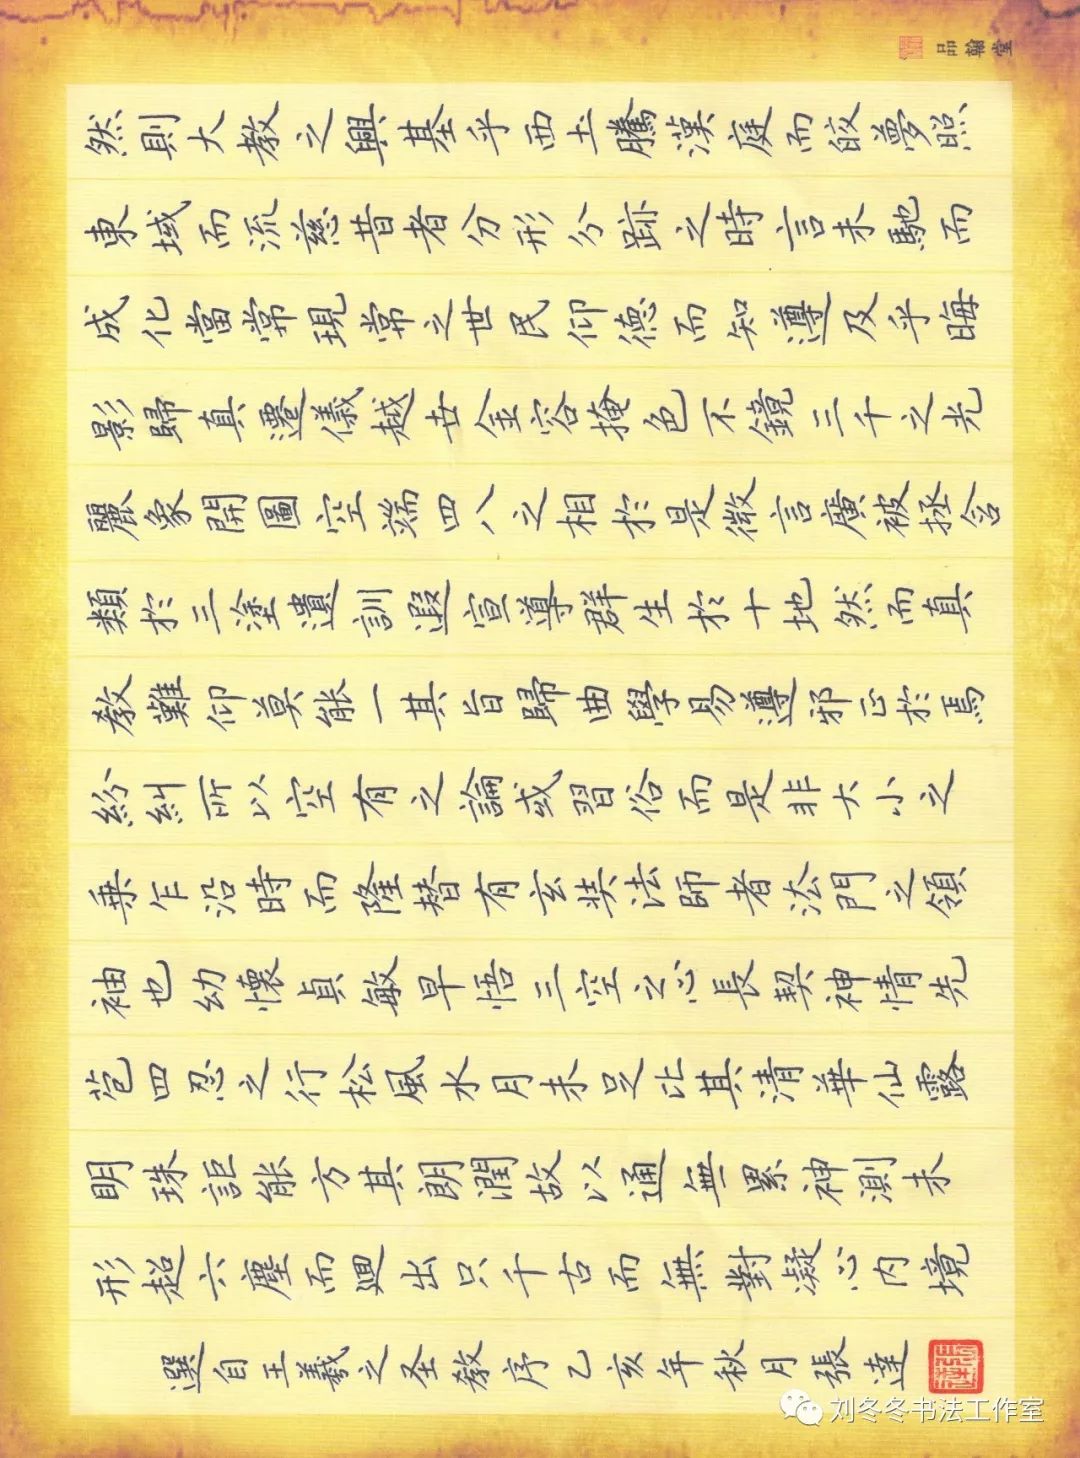 然則大教之興基乎西土騰漢庭而皎夢照
東域而流慈昔者分形分跡之時言未馳而
成化當常現常之世民仰德而知遵及乎晦
影歸真遷儀越世金容掩色不鏡三千之光
麗象開圖空端四八之相於是微言廣被拯含
類於三塗遺訓遐宣導群生於十地然而真
教難仰莫能一其旨歸曲學易遵邪正於焉
紛糾所以空有之論或習俗而是非大小之
乘乍沿時而隆替有玄奘法師者法門之領
袖也幼懷貞敏早悟三空之心長契神情先
苞四忍之行松風水月未足比其清華仙露
明珠詎能方其朗潤故以通無累神測未
形超六塵而迥出只千古而無對凝心內境
選自王羲之圣教序乙亥年秋月張達
品翰堂
刘冬冬书法工作室